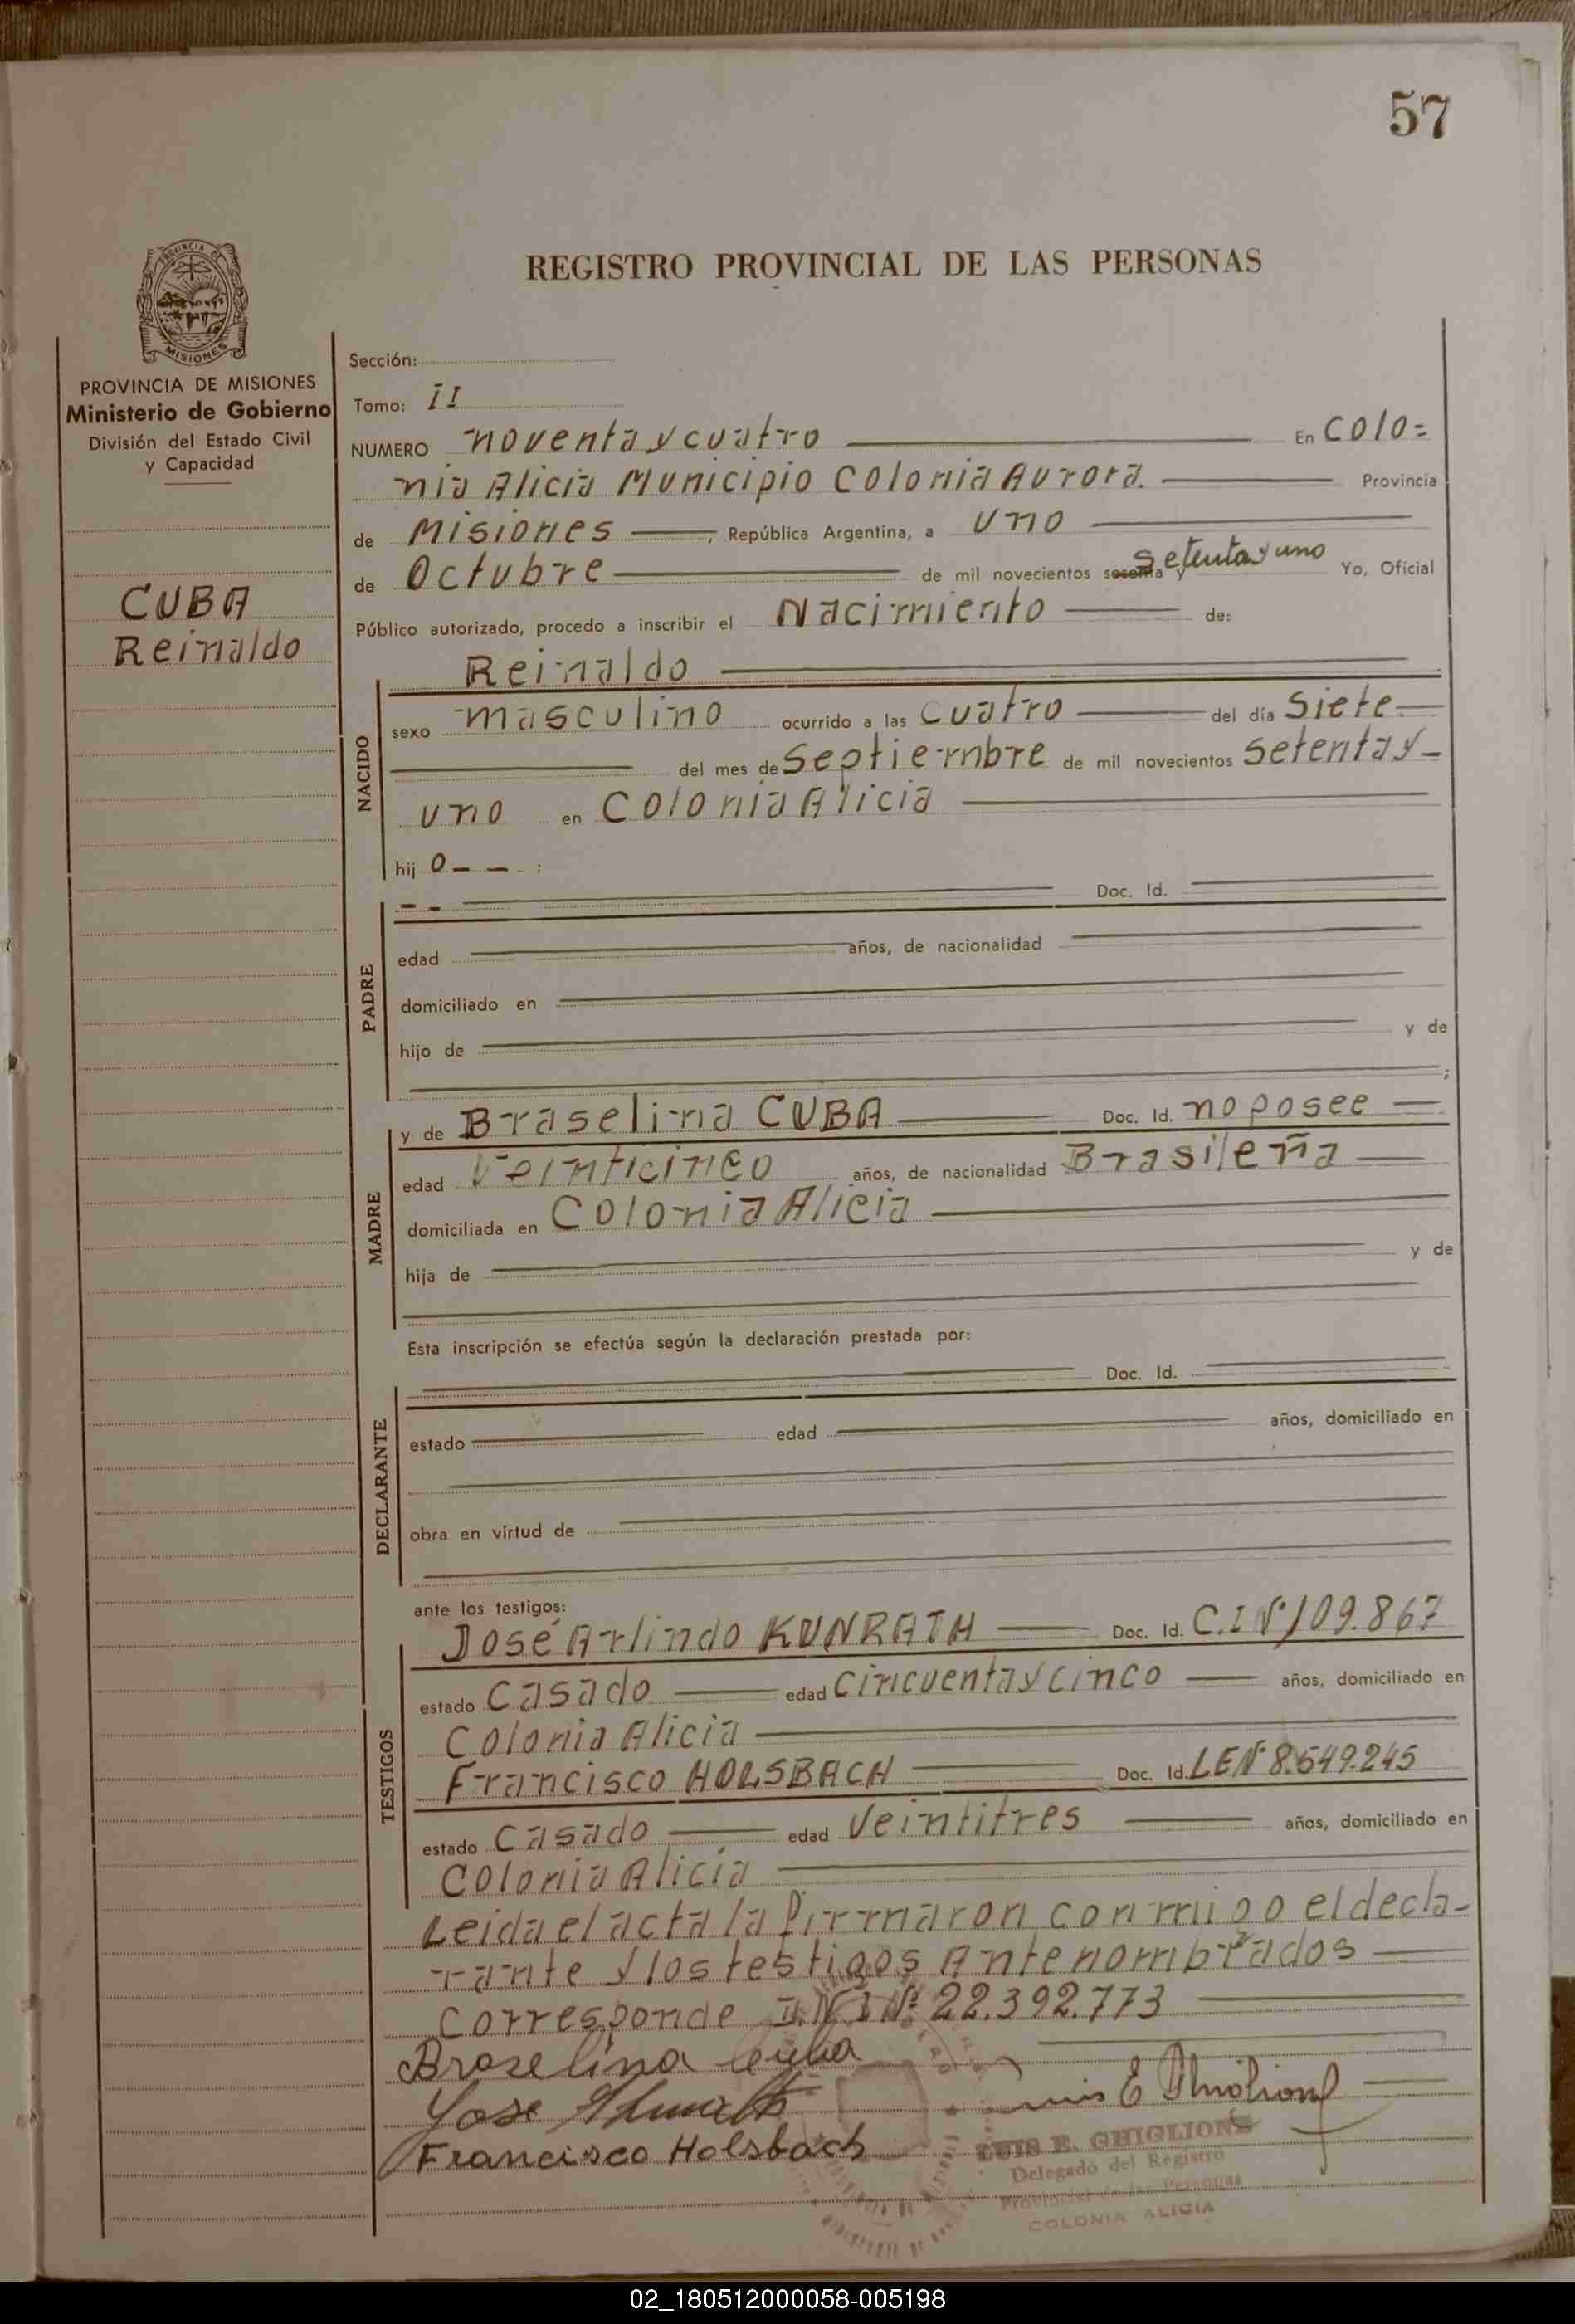 57
REGISTRO PROVINCIAL DE LAS PERSONAS
PROVINCIA DE
MISIONES
PROVINCIA DE MISIONES
Ministerio de Gobierno
División del Estado Civil
y Capacidad
CUBA
Reinaldo
Sección:
Tomo: II
NUMERO noventa y cuatro En Colo=
nia Alicia Municipio Colonia Aurora. Provincia
de Misiones, República Argentina, a uno
de Octubre de mil novecientos sesenta y setenta y uno Yo, Oficial
Público autorizado, procedo a inscribir el Nacimiento de:
NACIDO
Reinaldo
sexo masculino ocurrido a las cuatro del día Siete
del mes de Septiembre de mil novecientos setenta y
uno en Colonia Alicia
hijo - - :
PADRE
- - Doc. Id.
edad años, de nacionalidad
domiciliado en
hijo de y de
;
MADRE
y de Braselina CUBA Doc. Id. no posee
edad Veinticinco años, de nacionalidad Brasileña
domiciliada en Colonia Alicia
hija de y de
Esta inscripción se efectúa según la declaración prestada por:
DECLARANTE
Doc. Id.
estado edad años, domiciliado en
obra en virtud de
ante los testigos:
TESTIGOS
José Arlindo KUNRATH Doc. Id. C.I Nº 109.867
estado Casado edad Cincuenta y cinco años, domiciliado en
Colonia Alicia
Francisco HOLSBACH Doc. Id. LE Nº 8.549.245
estado Casado edad Veintitres años, domiciliado en
Colonia Alicia
Leida el acta la firmaron conmigo el decla-
rante y los testigos Antenombrados
Corresponde D.N.I Nº 22.392.773
Braselina Cuba
Jose
Luis E Ghiglione
Francisco Holsbach
LUIS E. GHIGLIONE
Delegado del Registro
Provincial de las Personas
COLONIA ALICIA
02_180512000058-005198